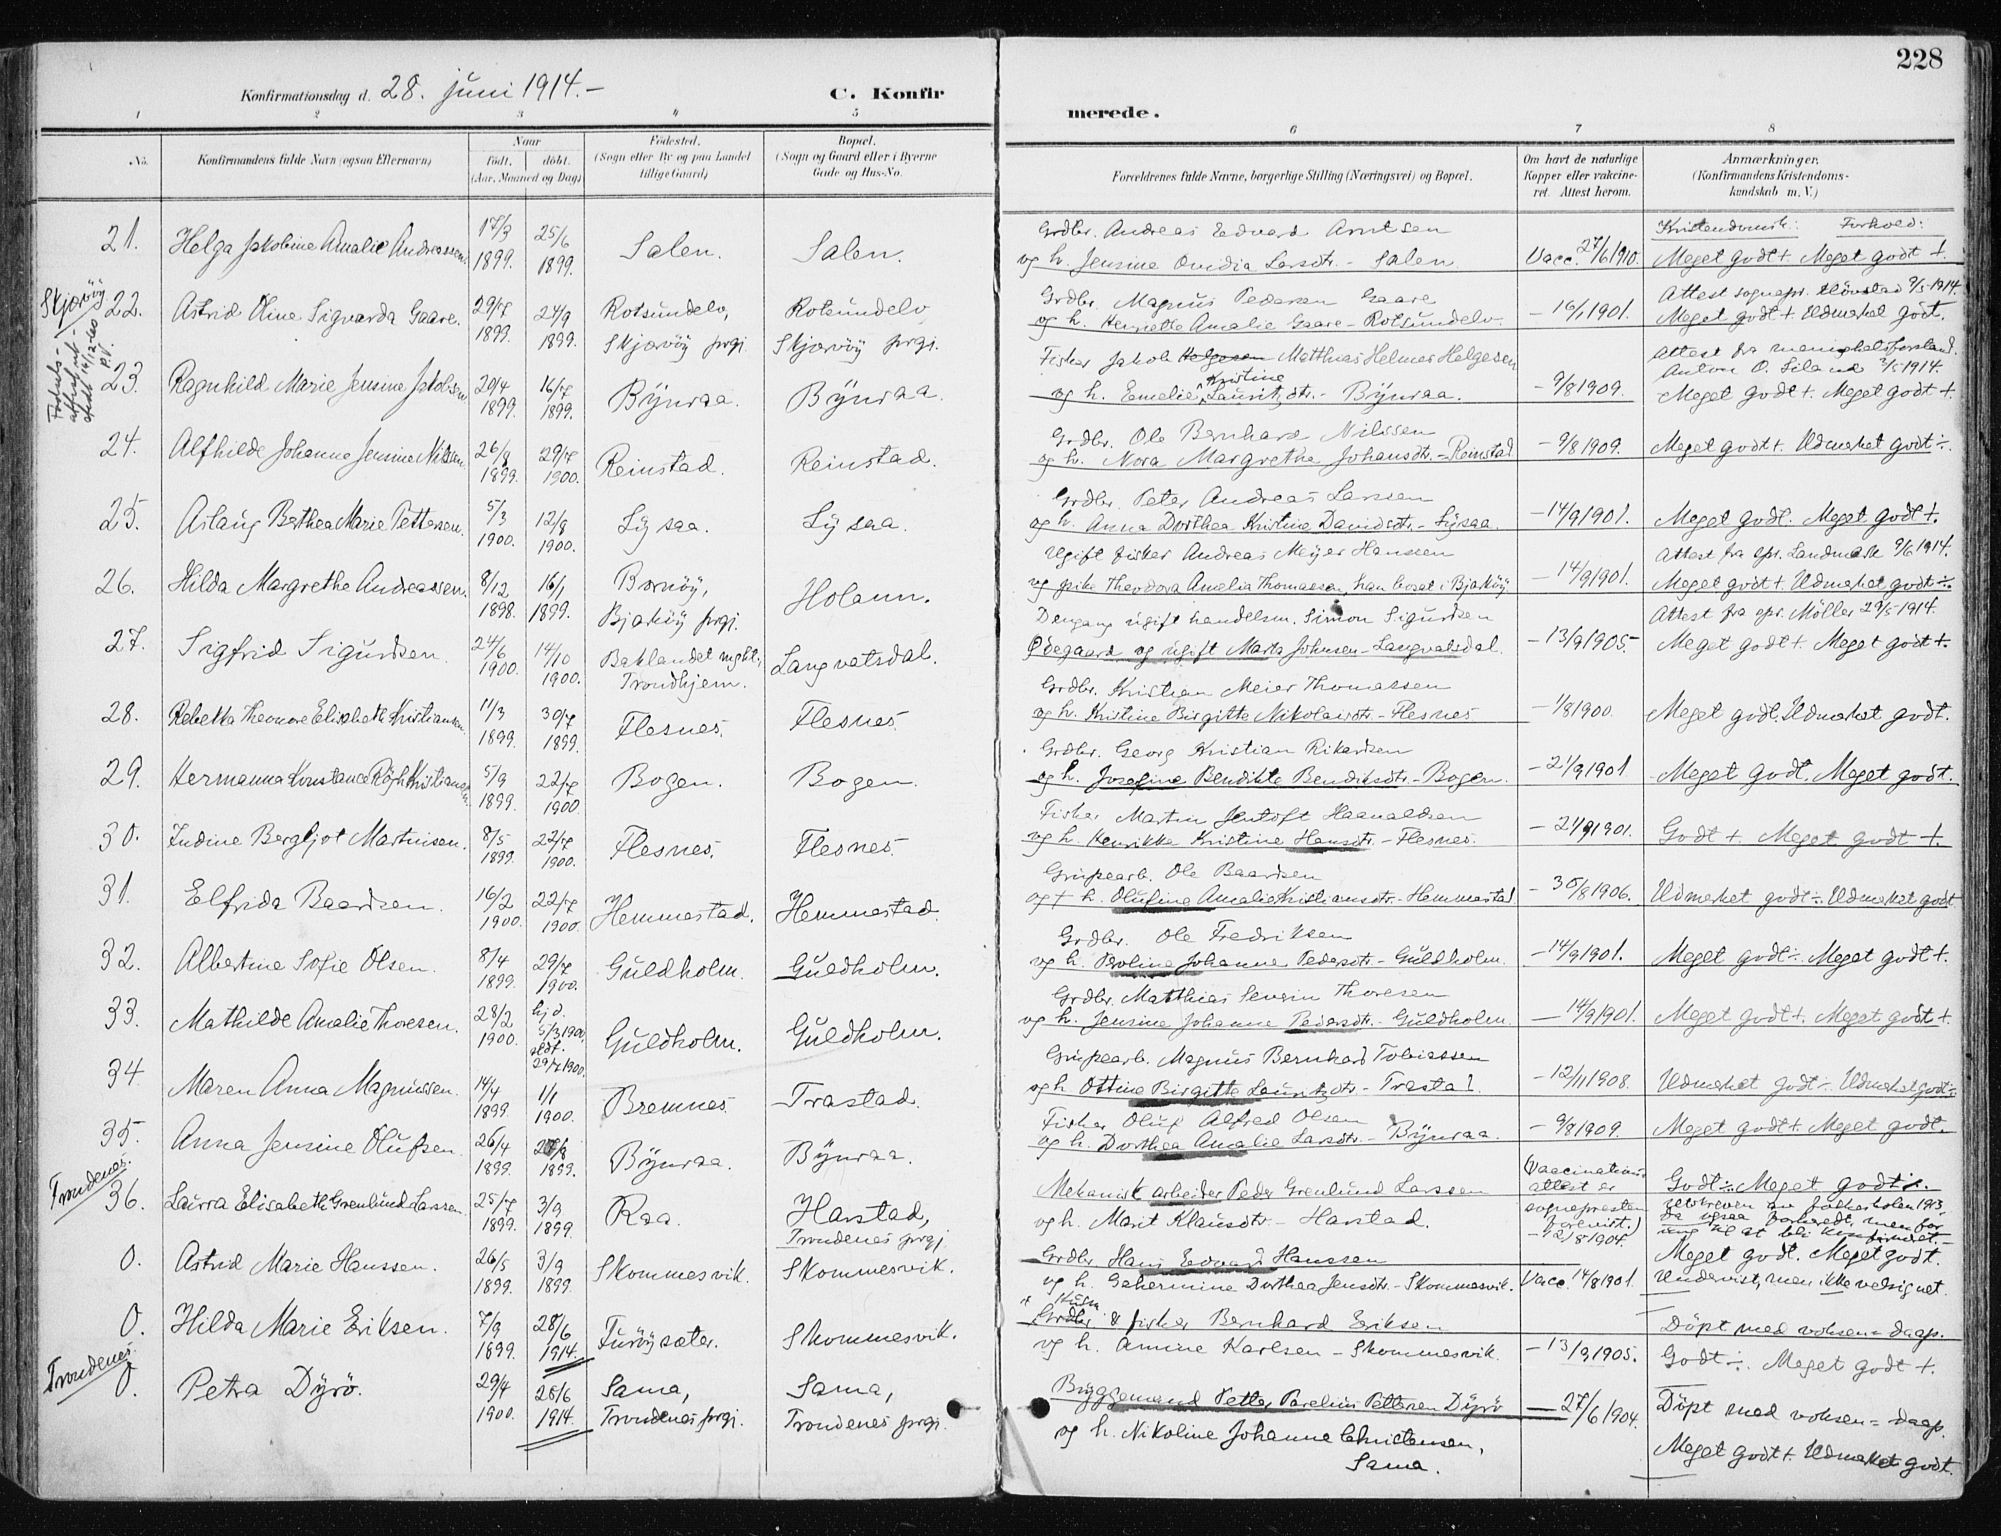 228
Konfirmationsdag d. 28. juni 1914.-
C. Konfir
merede.
1 2 3 4 5 6 7 8
No.
Konfirmandens fulde Navn (ogsaa Efternavn)
Naar
født. døbt.
(Aar, Maaned og Dag)
Fødested.
(Sogn eller By og paa Landet
tillige Gaard)
Bopæl.
(Sogn og Gaard eller i Byerne
Gade og Hus-No.
Forældrenes fulde Navne, borgerlige Stilling (Næringsvei) og Bopæl.
Om havt de naturlige
Kopper eller vakcine-
ret. Attest herom.
Anmærkninger.
(Konfirmandens Kristendoms-
kundskab m. V.)
Kristendomsk: Forhold:
21. Helga Jakobine Amalie Andreassen. 17/3 1899. 25/6 1899. Salen. Salen.
Grdbr. Andreas Edvard Arntsen
og h. Jensine Ovidia Larsdtr. - Salen. Vacc. 27/6 1910. Meget godt + Meget godt +
Skjærvöy
22. Astrid Oline Sigvarda Gaare. 29/7 1899. 24/9 1899. Rotsundelv, Skjærvöy prgj. Rotsundelv Skjærvöy prgj.
Grdbr. Magnus Pedersen Gaare
og h. Henriette Amalie Gaare - Rotsundelv. - 16/1 1901. Attest sognepr. Hövstad 9/5 1914.
Meget godt + Udmerket godt.
23. Ragnhild Marie Jensine Jakobsen. 20/4 1899. 16/7 1899. Bÿnraa. Bÿnraa.
Fisker Jakob Helgesen Matthias Helmer Helgesen
og h. Emelie Kristine Lauritzdtr. - Bÿnraa. - 9/8 1909. Attest fra menighetsforstand.
Anton O. Siland 3/5 1914.
Meget godt + Meget godt +
24. Alfhilde Johanne Jensine Nilssen. 26/8 1899. 29/7 1900. Reinstad. Reinstad.
Grdbr. Ole Bernhard Nilssen
og h. Nora Margrethe Johansdtr. - Reinstad - 9/8 1909. Meget godt + Udmerket godt ÷.
25. Aslaug Berthea Marie Pettersen. 5/3 1900. 12/8 1900. Lysaa. Lysaa.
Grdbr. Peter Andreas Larssen
og h. Anna Dorthea Kristine Davidsdtr. - Lysaa. - 14/9 1901. Meget godt. Meget godt +.
26. Hilda Margrethe Andreassen. 8/12 1898. 16/1 1899. Bjarköy prgj. Holann.
Ugift fisker Andreas Meyer Hanssen
og pike Theodora Amelia Thomassen, han bosat i Bjarköy. - 14/9 1901. Attest fra spr. Landmark 9/6 1914.
Meget godt + Udmerket godt ÷.
27. Sigfrid Sigurdsen. 24/6 1900. 14/10 1900. Baklandet mght. Trondhjem. Langvatsdal.
Dengang ugift handelsm. Simon Sigurdsen
Ödegaard og ugift Marta Johnsen - Langvatsdal. - 13/9 1905. Attest fra spr. Möller 29/5 1914.
Meget godt + Meget godt +.
28. Rebekka Theonore Elisabeth Kristiansen. 11/3 1899. 30/7 1899. Flesnes. Flesnes.
Grdbr. Kristian Meier Thomassen
og h. Kristine Birgitte Nikolaisdtr. - Flesnes - 1/8 1900. Meget godt. Udmerket godt.
29. Hermanna Konstance Kristiansen. 5/9 1899. 22/7 1900. Bogen. Bogen.
Grdbr. Georg Kristian Rikardsen
og h. Josefine Bendikte Bendiksdtr. - Bogen. - 21/9 1901. Meget godt. Meget godt.
30. Indine Bergljot Martinsen. 8/5 1899. 22/7 1900. Flesnes. Flesnes.
Fisker Martin Jentoft Haavaldsen
og h. Henrikke Kristine Hansdtr. - Flesnes. - 21/9 1901. Godt +. Meget godt +.
31. Elfrida Baardsen. 16/2 1900. 22/7 1900. Hemmestad. Hemmestad.
Grupearb. Ole Baardsen
og + h. Olufine Amalie Kristiansdtr. - Hemmestad - 30/8 1906. Udmerket godt ÷. Udmerket godt
32. Albertine Sofie Olsen. 8/4 1899. 29/7 1900. Guldholm. Guldholm.
Grdbr. Ole Fredriksen
og h. Peroline Johanne Pedersdtr. - Guldholm. - 14/9 1901. Meget godt ÷. Meget godt +.
33. Mathilde Amalie Thoresen. 28/2 1900. hjd. 5/3 1900, stdf. 29/7 1900. Guldholm. Guldholm.
Grdbr. Matthias Severin Thoresen
og h. Jensine Johanne Pedersdtr. - Guldholm. - 14/9 1901. Meget godt +. Meget godt +.
34. Maren Anna Magnussen. 14/4 1899. 1/1 1900. Bremnes. Trastad.
Grupearb. Magnus Bernhard Tobiassen
og h. Ottine Birgitte Lauritzdtr. - Trastad. - 12/11 1908. Udmerket godt ÷. Udmerket godt ÷.
35. Anna Jensine Olufsen. 26/4 1899. 1899. Bÿnraa. Bÿnraa.
Fisker Oluf Alfred Olsen
og h. Dorthea Amalie Larsdtr. - Bÿnraa. - 9/8 1909. Meget godt +. Meget godt.
Trondenes.
36. Laura Elisabeth Grønlund Larssen. 25/7 1899. 3/9 1899. Raa. Harstad, Trondenes prgj.
Mekanisk arbeider Peder Grønlund Larssen
og h. Marit Klausdtr. - Harstad. (Vaccinations
attest er
sognepresten
forevist.)
- 12/8 1904. Godt ÷. Meget godt ÷.
utskreven av folkeskolen 1913,
da ogsaa forberedt, men for
ung til at bli konfirmert. -
0. Astrid Marie Hanssen. 26/5 1899. 3/9 1899. Skommesvik. Skommesvik.
Grdbr. Hans Edvard Hanssen
og h. Gehermine Dorthea Jensdtr. - Skommesvik. Vacc. 14/8 1901. Meget godt. Meget godt.
Undervist, men ikke velsignet.
0. Hilda Marie Eriksen. 7/9 1899. 28/6 1914. Furöysæter. Skommesvik.
Grdbr & fisker Bernhard Eriksen
og h. Amine Karlsen - Skommesvik. - 13/9 1905. Döpt med voksen = daap.
Godt ÷. Meget godt +.
Trondenes.
0. Petra Dÿrö. 29/4 1900. 28/6 1914. Sama, Trondenes prgj. Sama, Trondenes prgj.
Byggemand Petter Parelius Pettersen Dÿrö
og h. Nikoline Johanne Christensen,
Sama. - 27/6 1904. Döpt med voksen = daap.
Meget godt +. Udmerket godt.